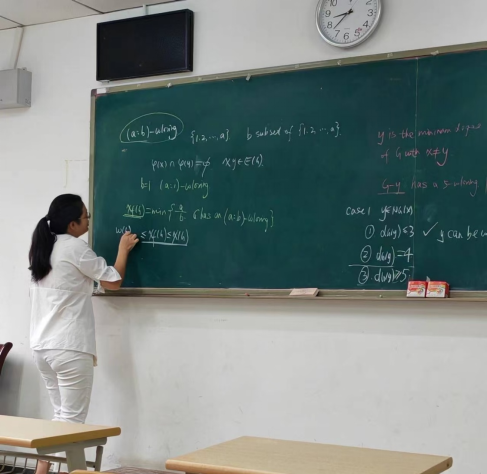 (a:b)-coloring {1,2,…,a} b subset of {1,2,…,a}
φ(x)∩φ(y)=φ xy∈E(G)
b=1 (a:1)-coloring
χf(G)=min{a/b: G has an (a:b)-coloring}
ω(G) ≤ χf(G) ≤ χ(G)
y is the minimum degree
of G with x≠y
G-y has a 5-coloring
case 1 y∈NG(x)
① dG(y)≤3 ✓ y can be
② dG(y)=4
③ dG(y)≥5